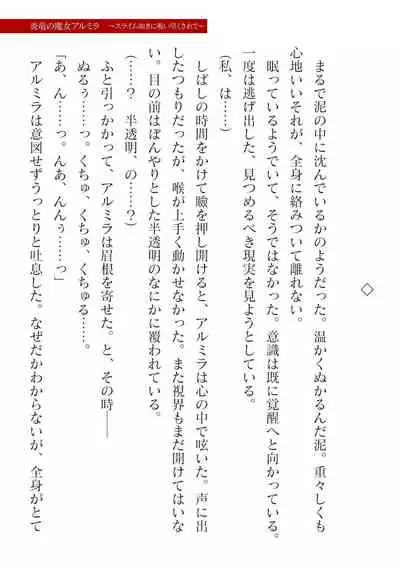 炎竜の魔女アルミラ　～スライム如きに吸い尽くされて～
◇
　まるで泥の中に沈んでいるかのようだった。温かくぬかるんだ泥。重々しくも
心地いいそれが、全身に絡みついて離れない。
　眠っているようでいて、そうではなかった。意識は既に覚醒へと向かっている。
一度は逃げ出した、見つめるべき現実を見ようとしている。
（私、は……）
　しばしの時間をかけて瞼を押し開けると、アルミラは心の中で呟いた。声に出
したつもりだったが、喉が上手く動かせなかった。また視界もまだ開けてはいな
い。目の前はぼんやりとした半透明のなにかに覆われている。
（……？　半透明、の……？）
　ふと引っかかって、アルミラは眉根を寄せた。と、その時――
　ぬるぅ……っ。くちゅ、くちゅる……。
「あ、ん……っ。んあ、んんぅ……っ」
　アルミラは意図せずうっとりと吐息した。なぜだかわからないが、全身がとて